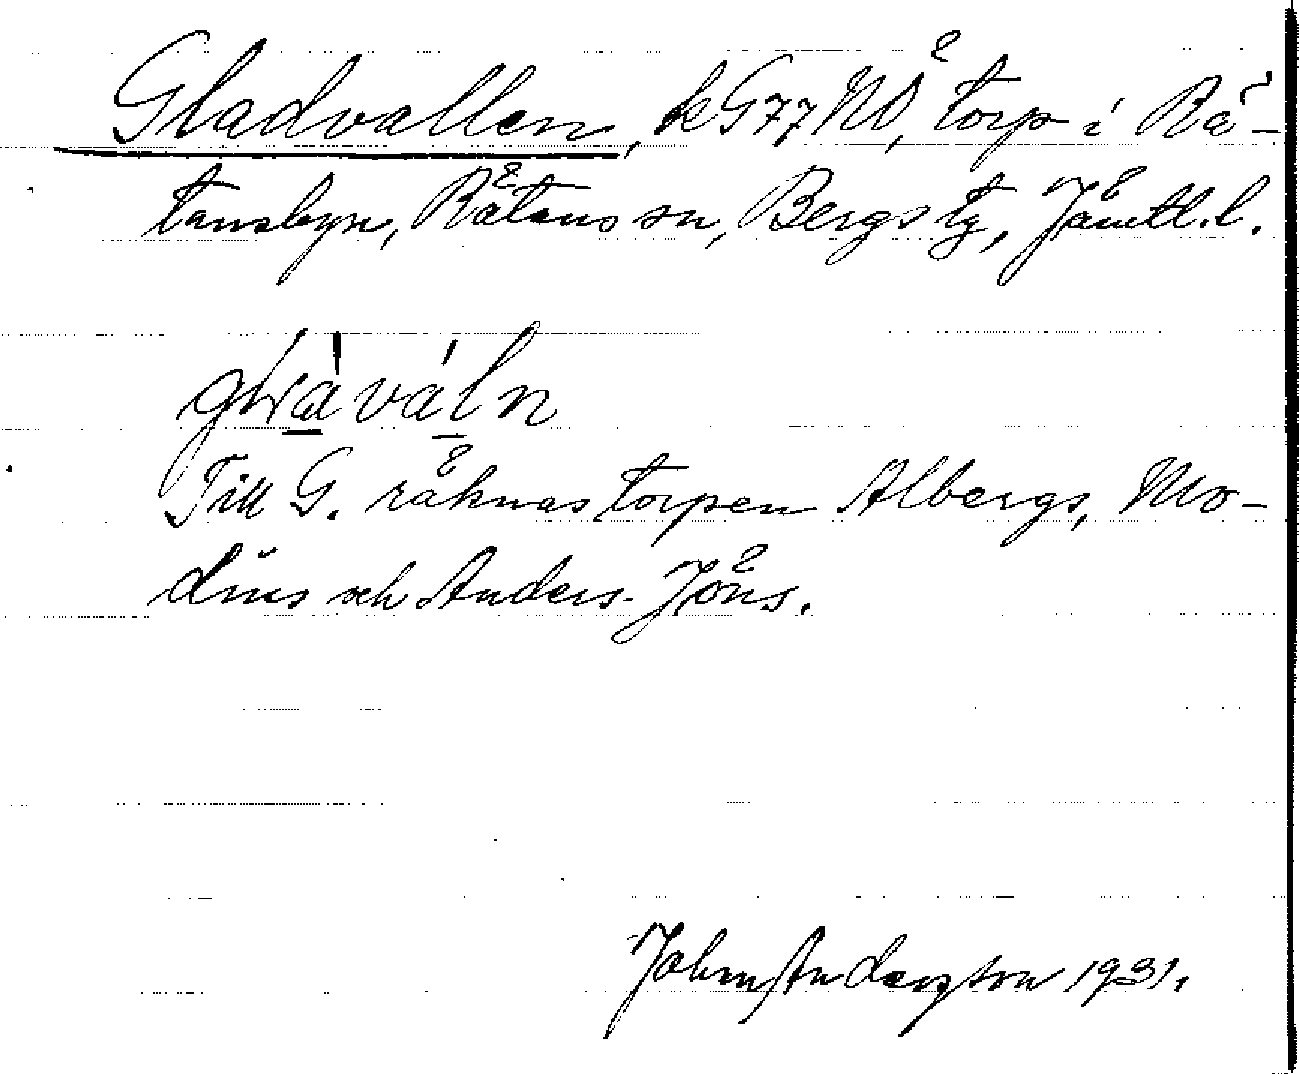 Gladvallen, k G77 NÖ, torp i Rä-
tansbyn, Rätans sn, Bergs tg, Jämtl. l.
Till G. räknas torpen Albergs, Mo-
dins och Anders-Jöns.
John Anderzson 1931.